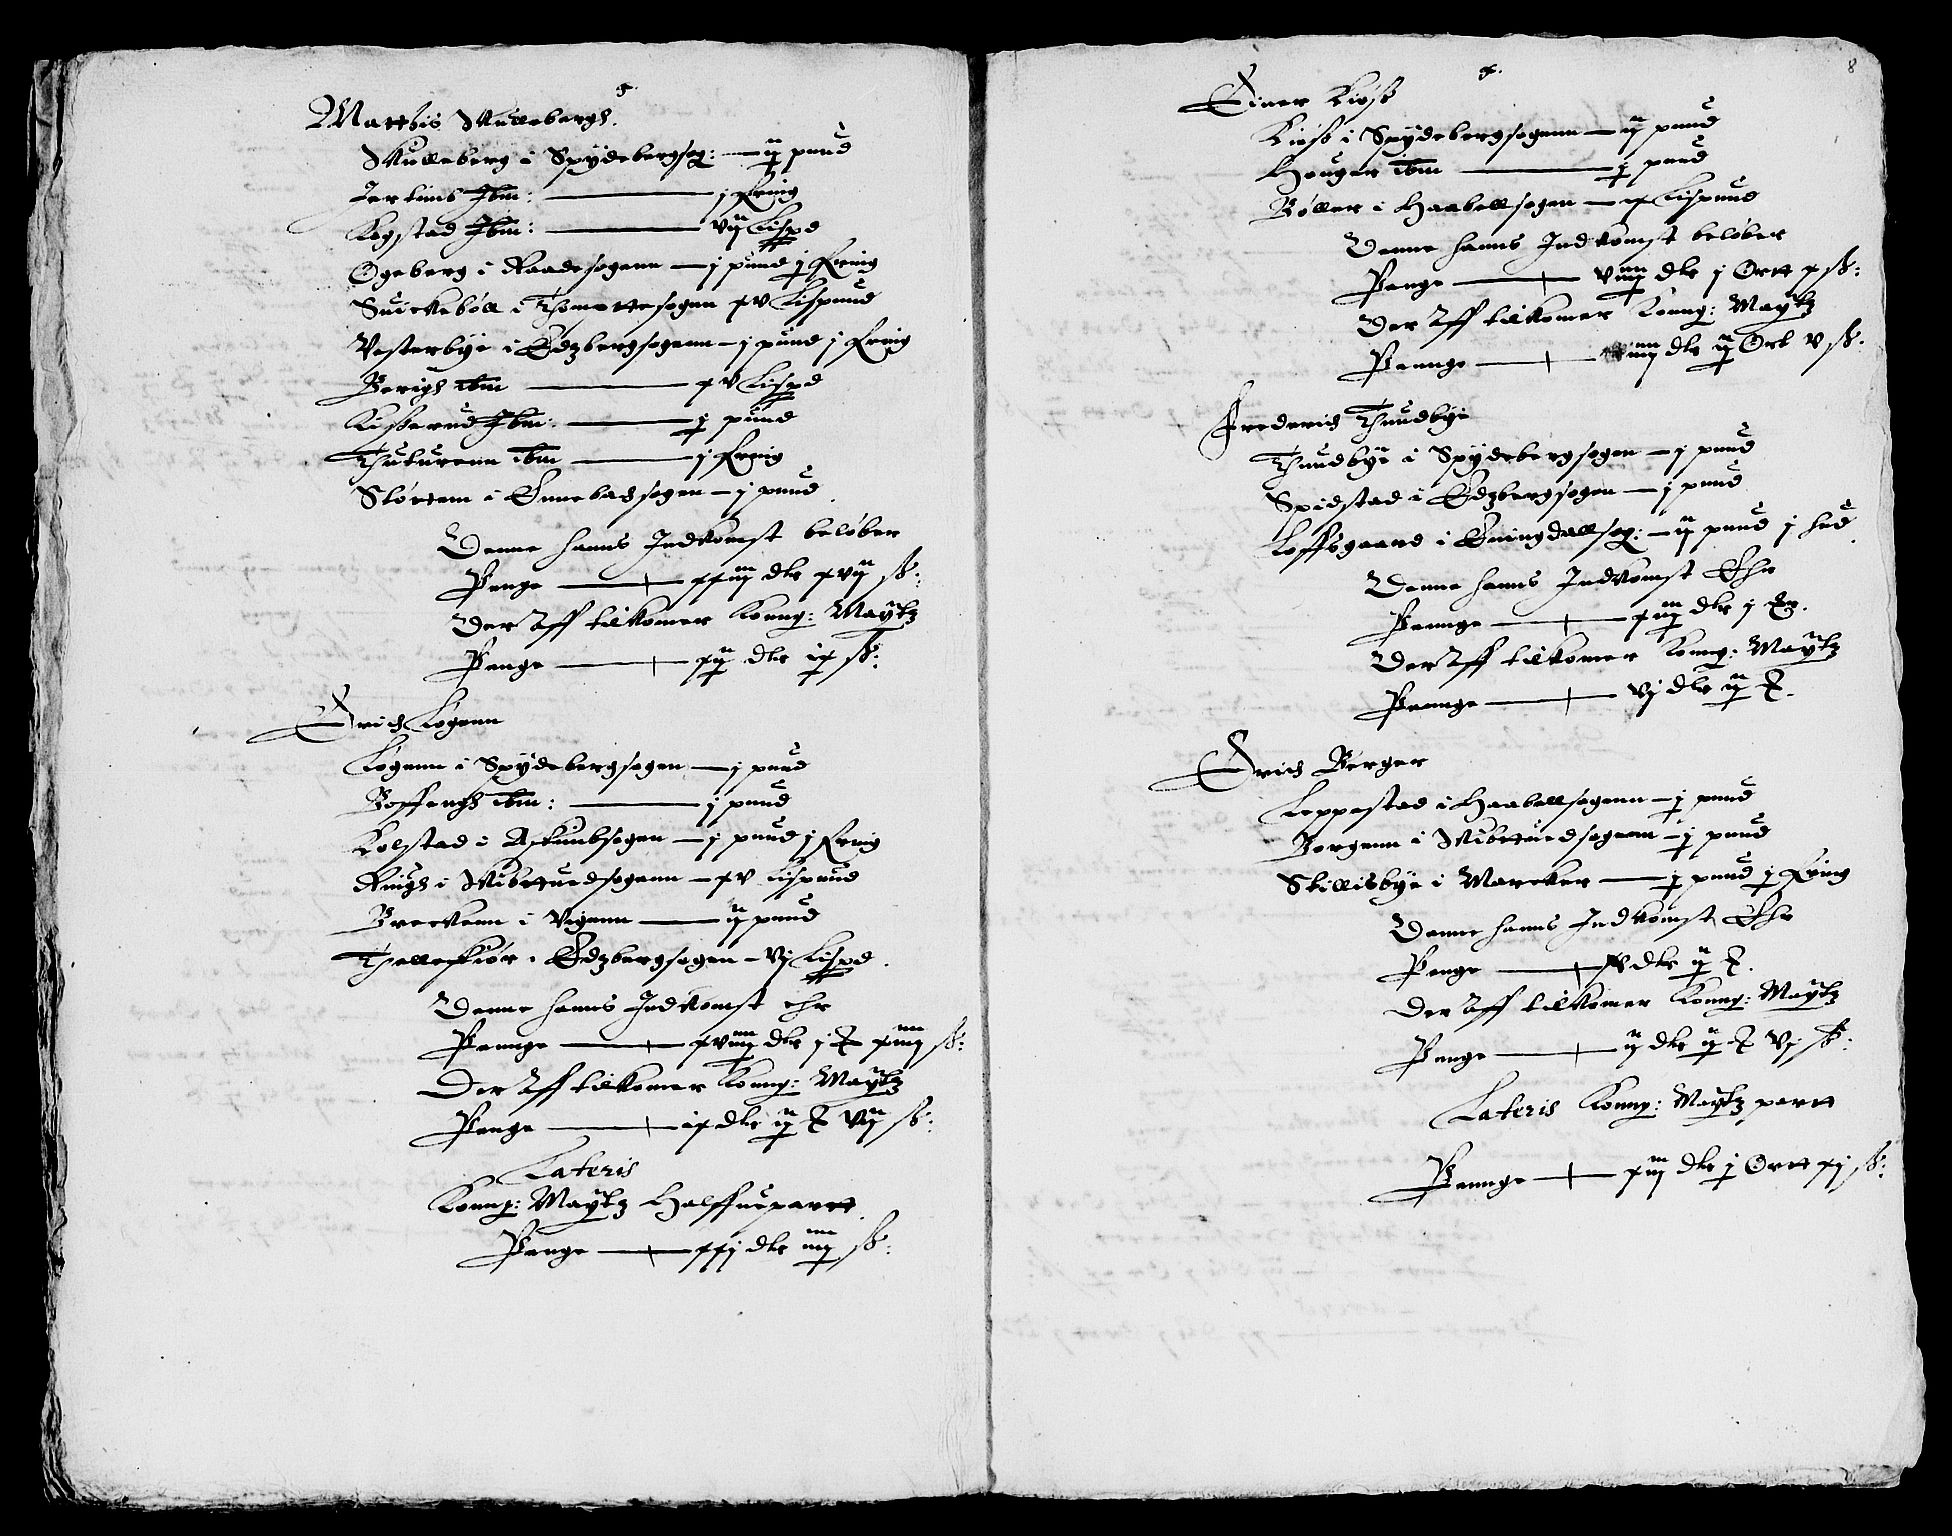 Matthis Mullebergh.
Mulleberg i Spydebergsog: — ij pund
Jertuns Ibm: — j Fring
Kogstad Ibm: — vij Lispd
Ogeberg i Raadesogenn — j pund j Fring
Suickebøll i Thomettesogen xv Lispund
Vesterbye i Edzbergsogenn — j pund j Fring
Berigh ibm — xv Lispd
Kisserud Ibm: — j pund
Thuturenn ibm — j Fring
Slørtem i Ennebachsogen — j pund
Denne hanns Indkomst beløber
Penge — xxiiij dlr xvij sk:
Der Aff tilkomer Konng: Maytz
Penge — xij dlr ix sk:
Erich Løgenn
Løgenn i Spydebergsogen — j pund
Boffengh ibm: — j pund
Kolstad i Askimbsogen — j pund j Fring
Ringh i Mibettuedsogenn — xv Lispund
Breckenn i Vegenn — ij pund
Thelleffiør i Edzbergsogen — vj Lispd
Denne hanns Indkomst ehr
Pennge — xviiij dlr j ort xiiij sk:
Der Aff tilkomer Konng: Maytz
Penge — ix dlr ij ort vij sk:
Lateris
Konng: Maytz Halffueparrt
Penge — xxj dlr iiij sk:
8
Einer Kiøss
Kiøss i Spydebergsogenn — ij pund
Houger ibm — j pund
Bøller i Haabøllsogen — x Lispund
Denne hanns Indkomst beløber
Penge — viiij dlr j Ortt x sk:
Der Aff tilkomer Konng: Maytz
Pennge — iiij dlr ij Ort v sk:
Frederich Thundbye
Thundbye i Spydebergsogen — j pund
Spidstad i Edzbergsogen — j pund
Loffsgaard i Enningdallsog: — ij pund j hud
Denne hanns Indkomst Ehr
Pennge — xiij dlr j ort.
Der Aff tilkomer Konng: Maytz
Pennge — vj dlr ij ort.
Erich Berger
Leppestad i Haabøllsogenn — j pund
Borgenn i Mibettuedsogenn — j pund
Skillisbye i Marcker — j pund j Fring
Denne hanns Indkomst Ehr
Penge — v dlr ij ort.
Der Aff tilkomer Konng: Maytz
Penge — ij dlr ij ort vj sk:
Lateris Konng: Maytz partt
Pennge — xiij dlr j Ortt xj sk: